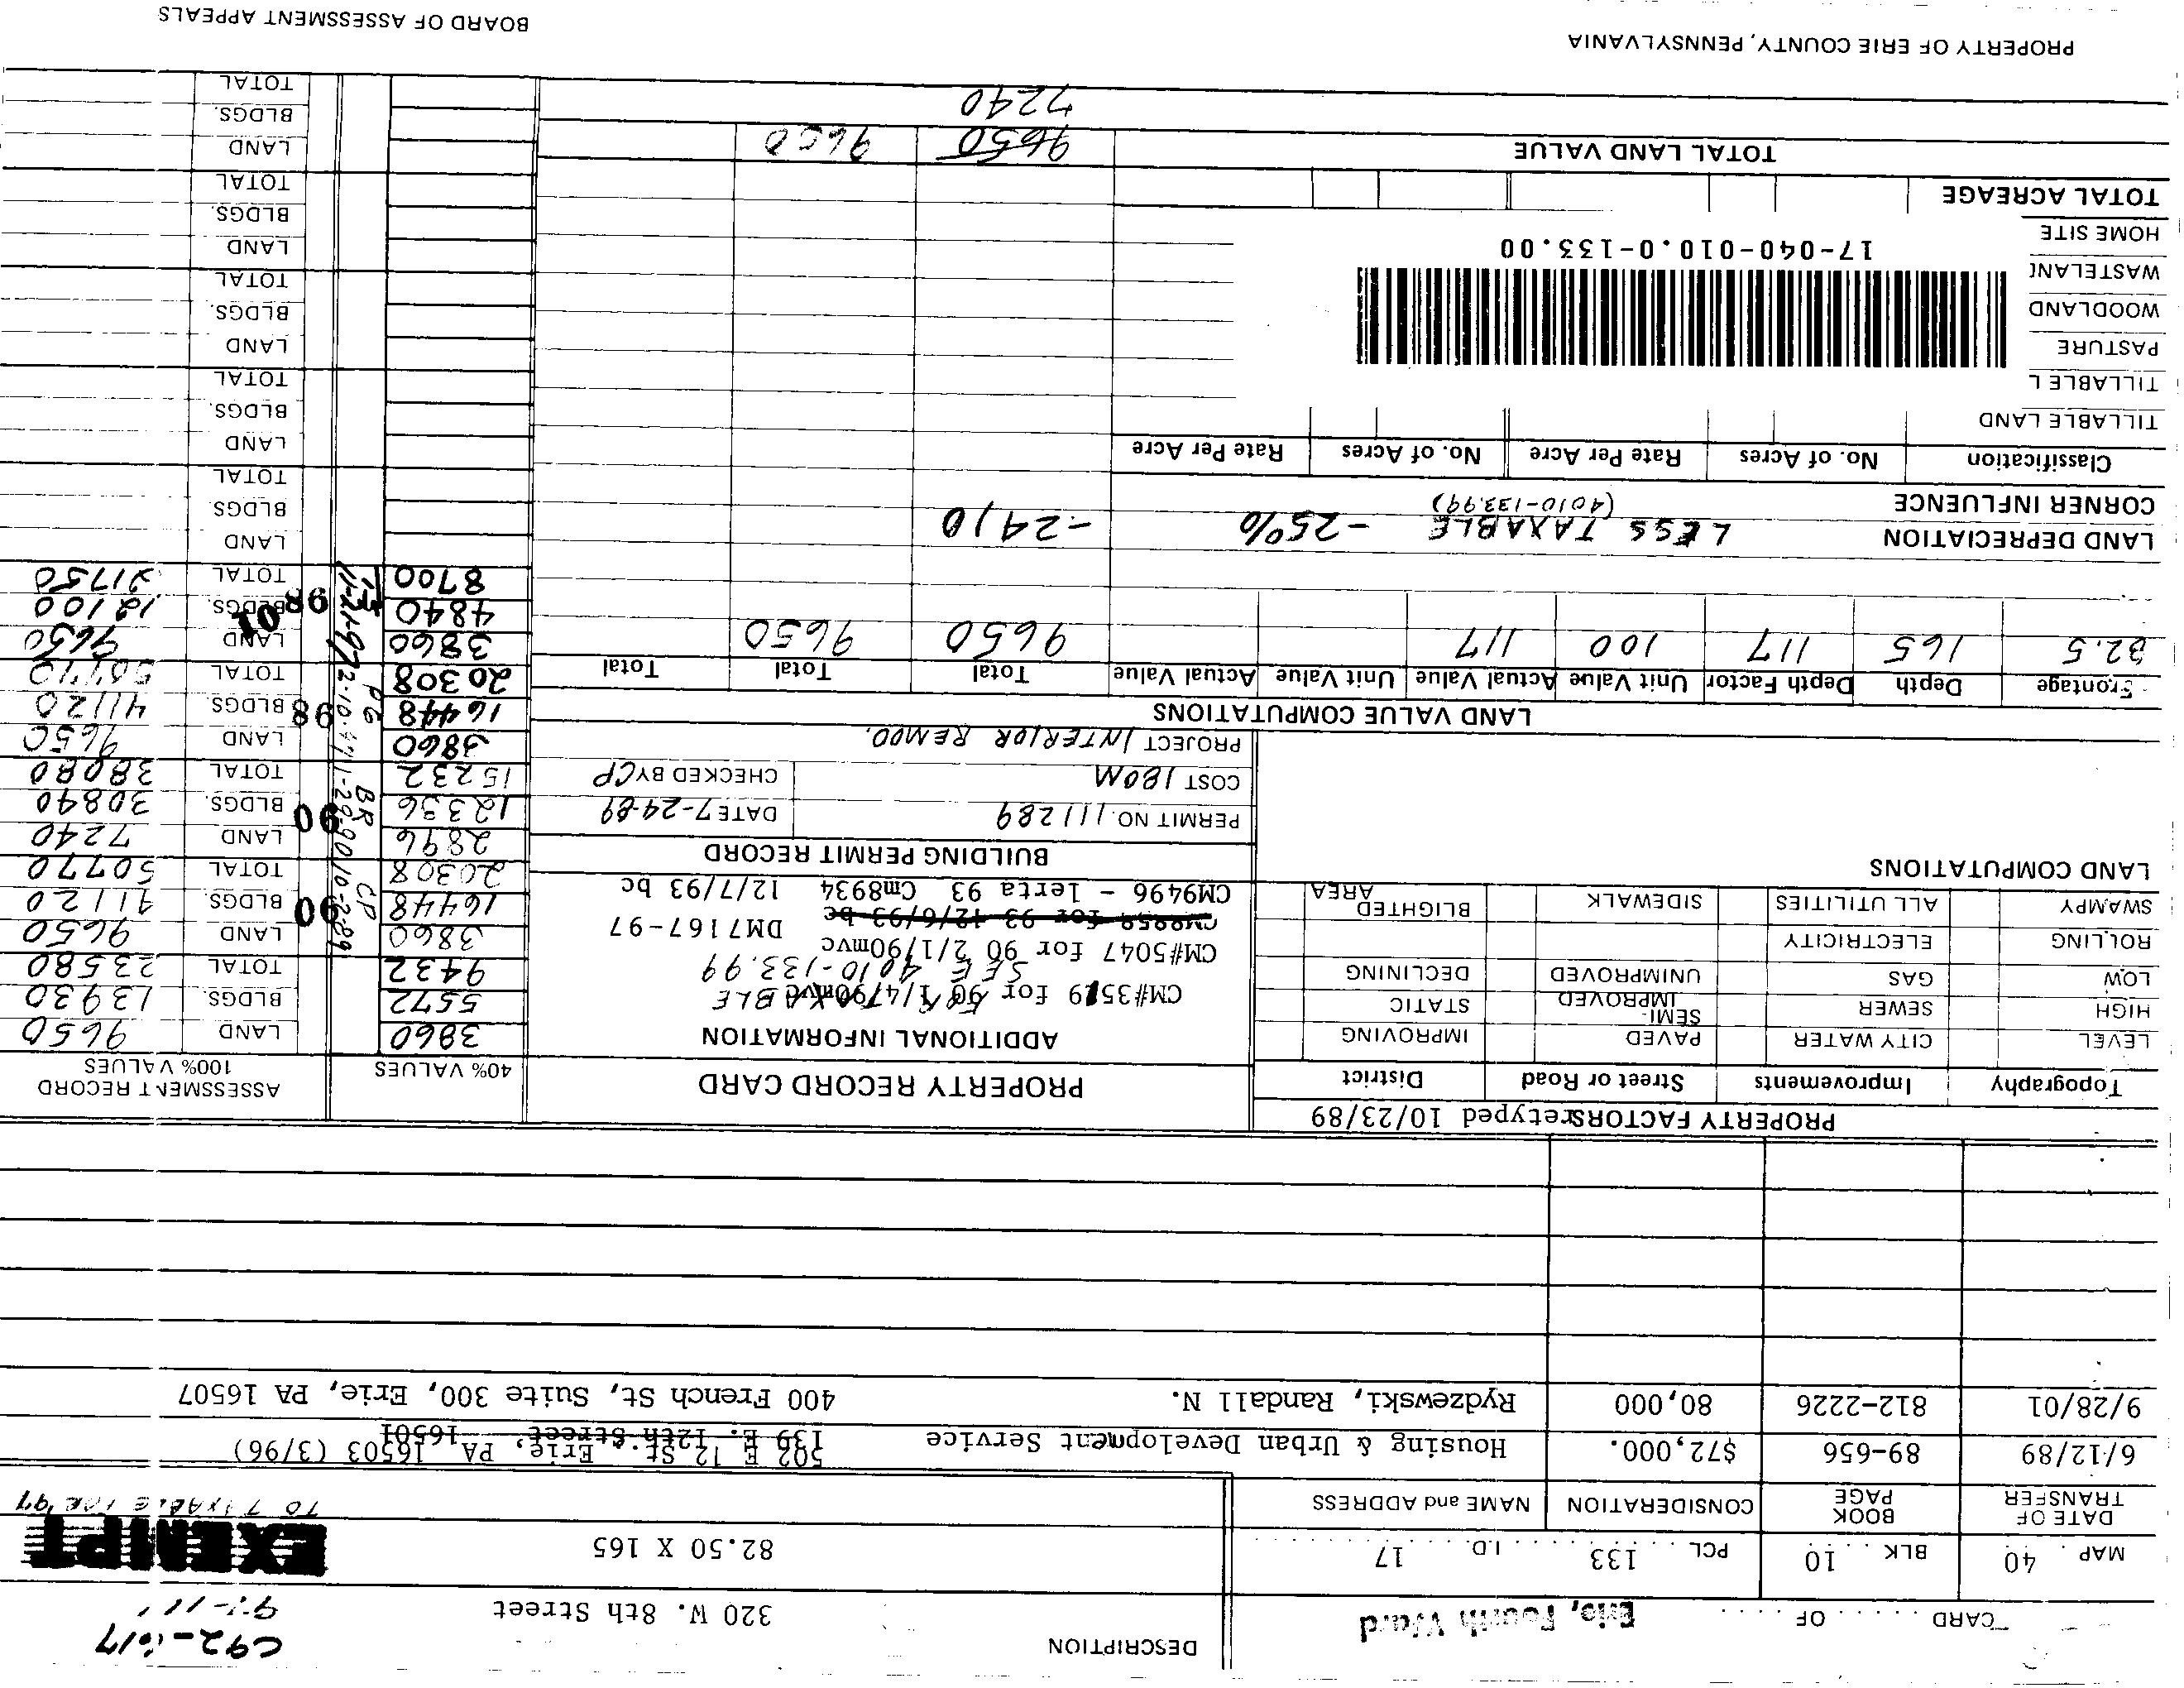 CARD ..... OF .....
Erie, Fourth Ward
DESCRIPTION
320 W. 8th Street
MAP 40 BLK 10 PCL 133 I.D. 17
82.50 X 165
EXEMPT
TO TAXABLE FOR '97
DATE OF TRANSFER
BOOK PAGE
CONSIDERATION
NAME and ADDRESS
6/12/89 89-656 $72,000. Housing & Urban Development Service 139 E. 12th Street, 16501
502 E 12 St., Erie, PA 16503 (3/96)
9/28/01 812-2226 80,000 Rydzewski, Randall N. 400 French St, Suite 300, Erie, PA 16507
PROPERTY FACTORS retyped 10/23/89
Topography Improvements Street or Road District
LEVEL CITY WATER PAVED IMPROVING
HIGH SEWER SEMI-IMPROVED STATIC
LOW GAS UNIMPROVED DECLINING
ROLLING ELECTRICITY
SWAMPY ALL UTILITIES SIDEWALK BLIGHTED AREA
LAND COMPUTATIONS
PROPERTY RECORD CARD
ADDITIONAL INFORMATION
SEE 4010-133.99
CM#5047 for 90 2/1/90mvc
DM7167-97
CM9496 - 1erta 93 Cm8934 12/7/93 bc
BUILDING PERMIT RECORD
PERMIT NO. 111289 DATE 7-24-89
COST 180M CHECKED BY CP
PROJECT INTERIOR REMOD.
40% VALUES
ASSESSMENT RECORD
100% VALUES
3860 LAND 9650
5572 BLDGS. 13930
9432 TOTAL 23580
3860 LAND 9650
16448 90 BLDGS. 41120
20308 TOTAL 50770
2896 LAND 7240
12336 90 BLDGS. 30840
15232 TOTAL 38080
3860 LAND 9650
16448 98 BLDGS. 41120
20308 TOTAL 50770
3860 LAND 9650
4840 98 01 BLDGS. 12100
8700 TOTAL 21750
LAND
BLDGS.
TOTAL
LAND
BLDGS.
TOTAL
LAND
BLDGS.
TOTAL
LAND
BLDGS.
TOTAL
LAND
BLDGS.
TOTAL
LAND VALUE COMPUTATIONS
Frontage Depth Depth Factor Unit Value Actual Value Unit Value Actual Value Total Total Total
82.5 165 117 100 117 9650 9650
LAND DEPRECIATION
CORNER INFLUENCE
LESS TAXABLE -25% -2410
(4010-133.99)
Classification No. of Acres Rate Per Acre No. of Acres Rate Per Acre
TILLABLE LAND
TILLABLE L
PASTURE
WOODLAND
WASTELAN
HOME SITE
17-040-010.0-133.00
TOTAL ACREAGE
TOTAL LAND VALUE 9650 9650
7240
PROPERTY OF ERIE COUNTY, PENNSYLVANIA
BOARD OF ASSESSMENT APPEALS